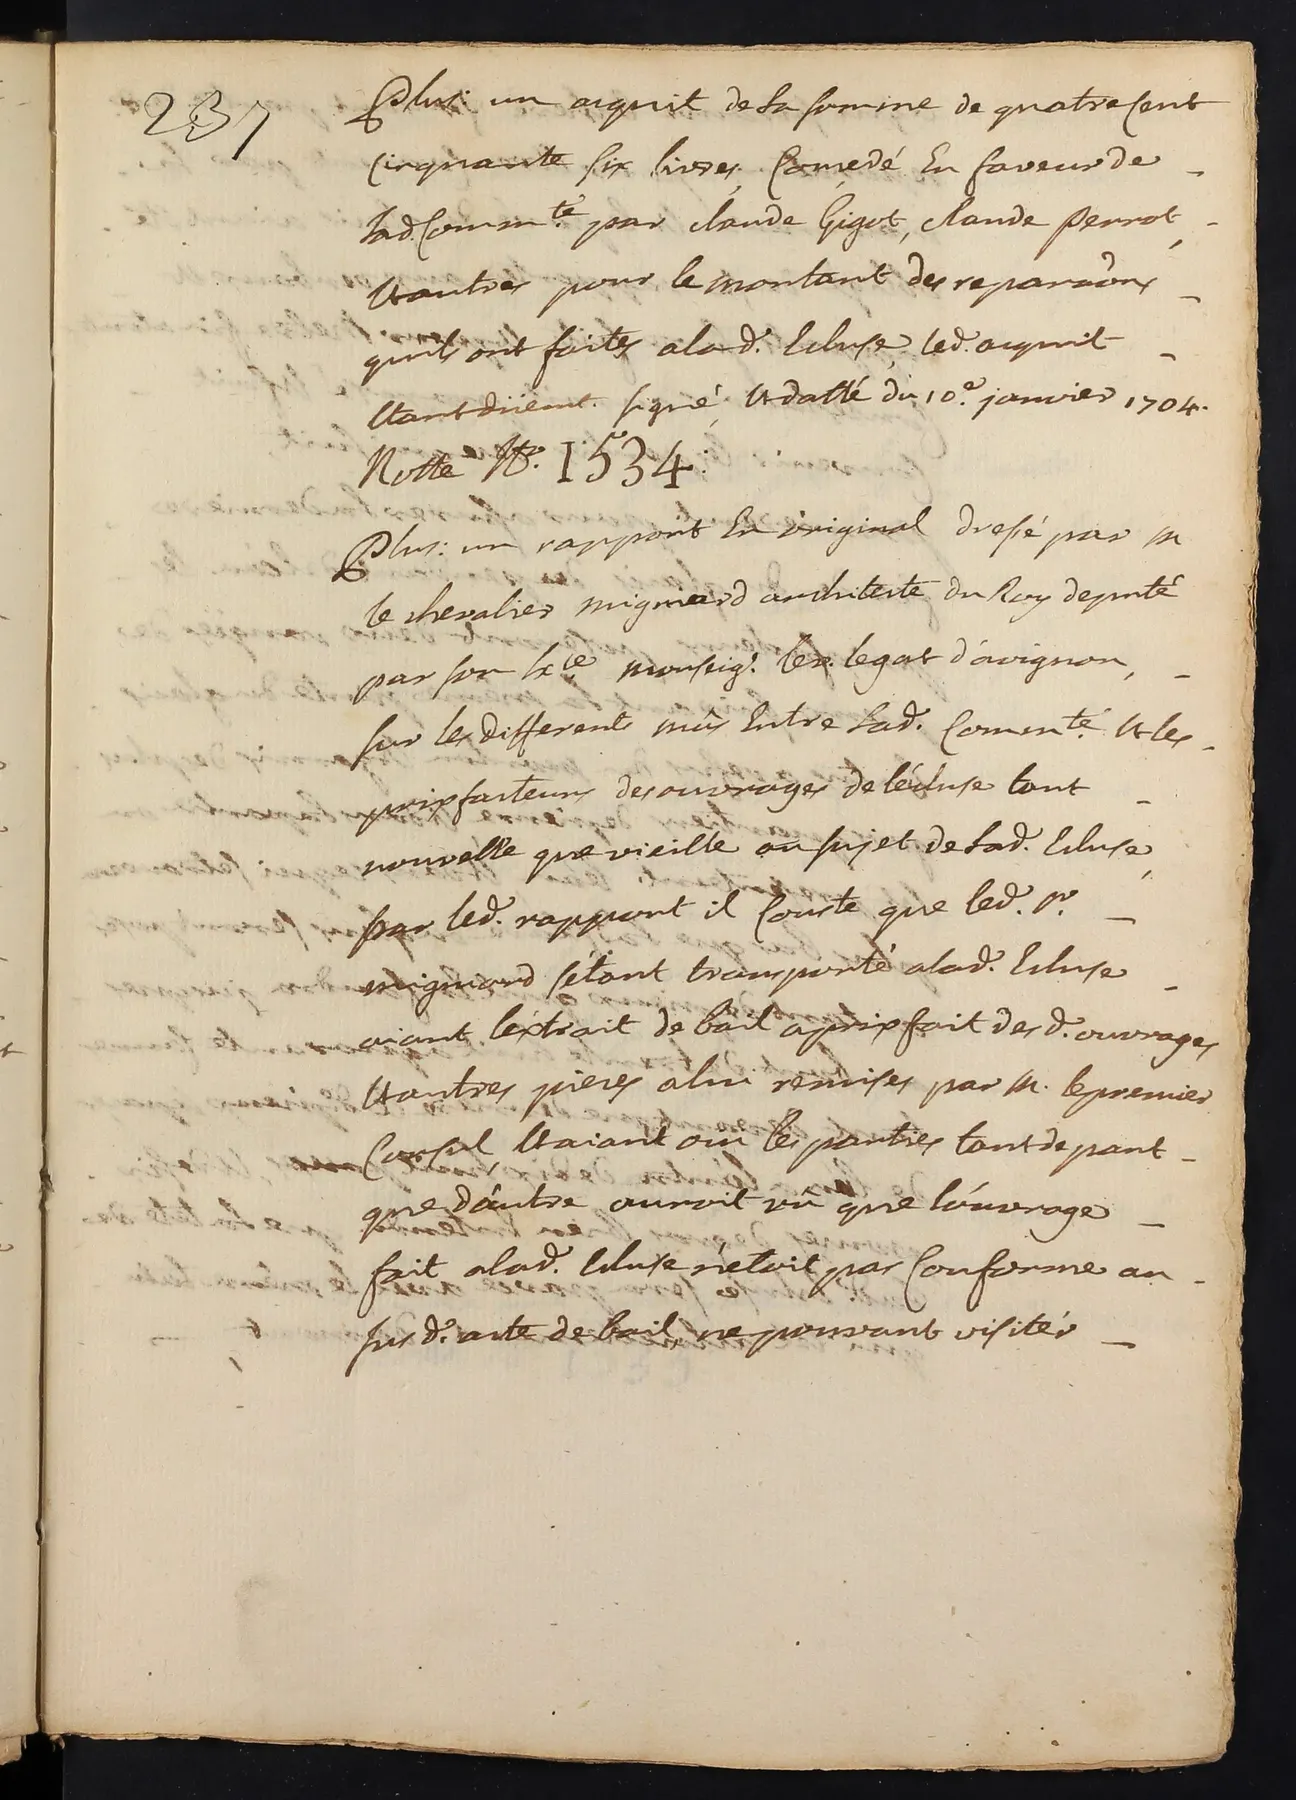 237
Plus: un aquit de la somme de quatre cent
cinquante six livres, Concedé En faveur de
lad. Comm.té par claude Gigot, claude Perrot,
Et autres pour le montant des reparaôns
quils ont faites alad. Ecluse, led. aquit
Etant düemt. signé, Et datté du 10.e janvier 1704.
Notté N.o 1534.
Plus: un rapport En original dressé par m
le chevalier mignard architecte du Roy deputé
par son Ex.ce monseig.r le v. legat d'avignon,
sur les differents mûs Entre Lad. Comm.té Et les
prixfacteurs des ouvrages de l'écluse tant
nouvelle que vieille au sujet de Lad. Ecluse,
par led. rapport il Conste que led. s.r
mignard s'étant transporté alad. Ecluse
aiant l'extrait de bail aprixfait des d. ouvrages
Et autres pieces alui remises par m. le premier
Consul, Et aiant oui les parties tant de part
que d'autre auroit vû que l'ouvrage
fait alad. Ecluse n'etoit pas Conforme au
sus d. acte de bail, ne pouvant visiter